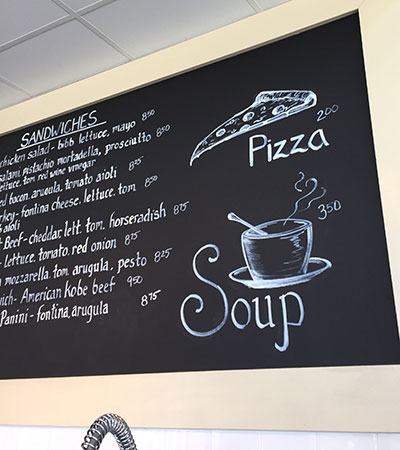 SANDWICHES
chicken salad - bibb lettuce, mayo 8.50
salami, pistachio mortadella, prosciutto 8.50
lettuce, tom, red wine vinegar
bacon, arugula, tomato aioli 8.75
fontina cheese, lettuce, tom 8.50
aioli
Beef - cheddar, lett. tom, horseradish 8.75
- lettuce, tomato, red onion 8.75
mozzarella, tom, arugula, pesto 8.25
- American kobe beef 9.50
Panini - fontina, arugula 8.75
Pizza 2.00
Soup 3.50